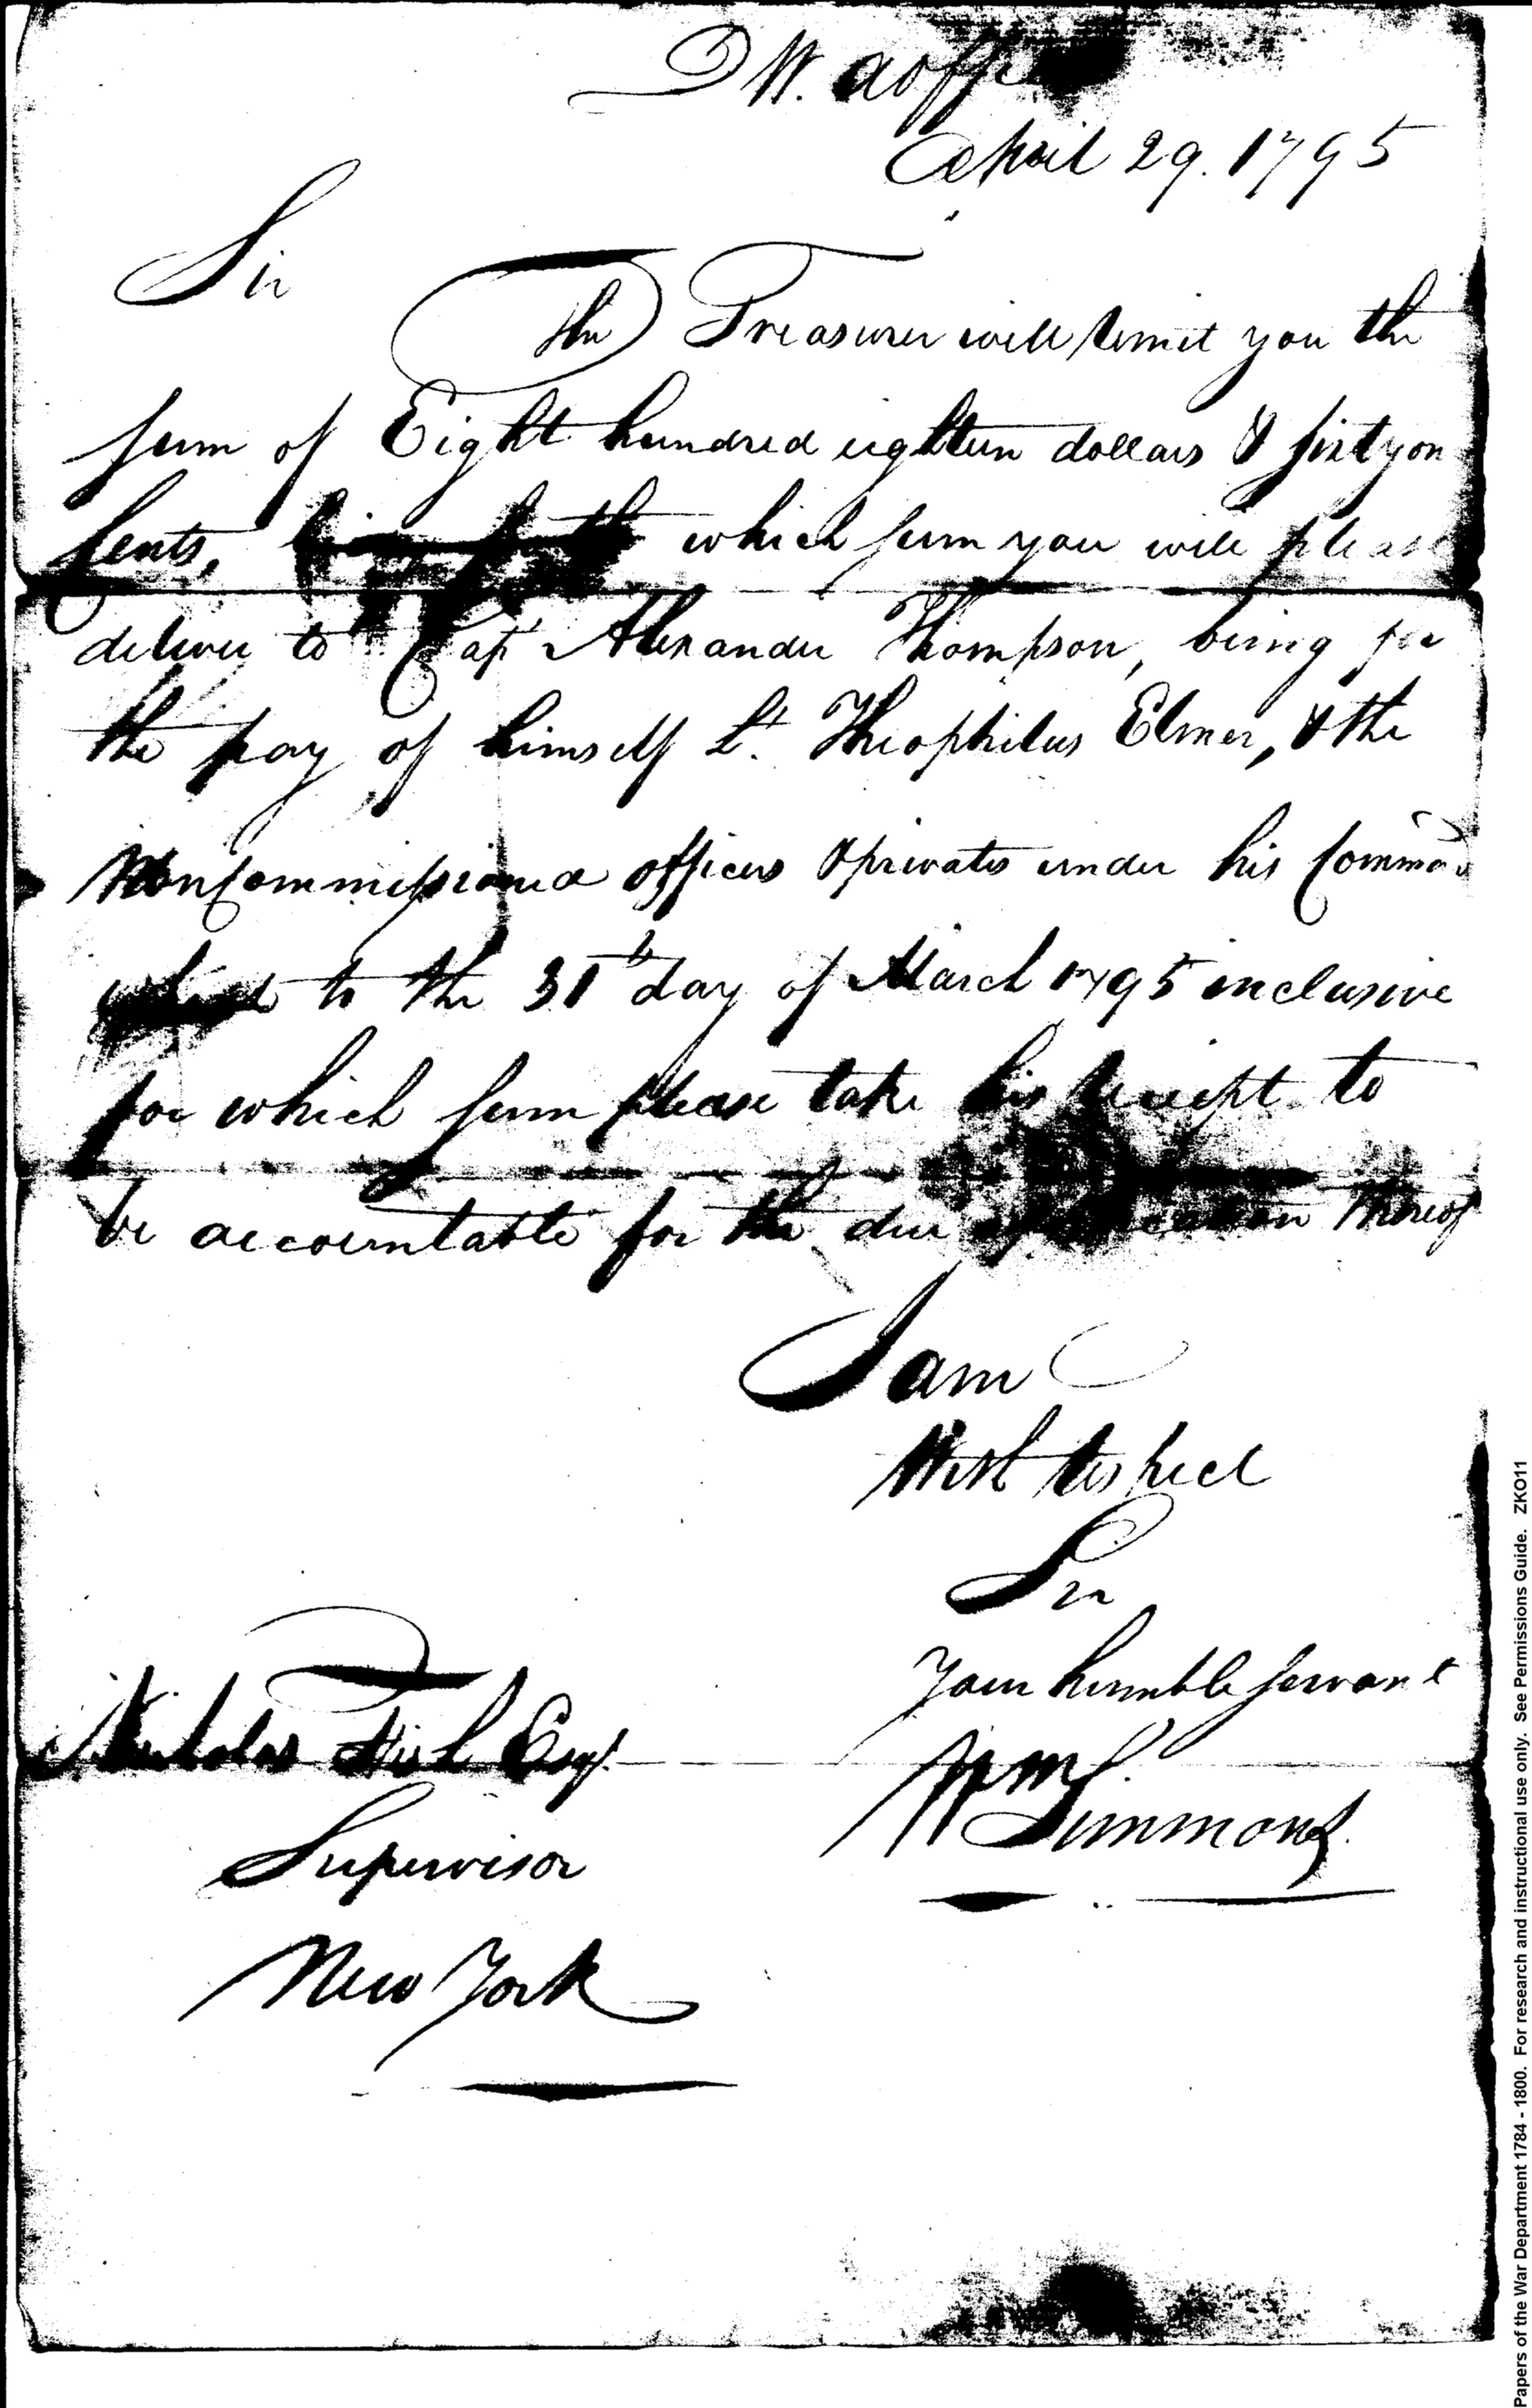 D W. a office
April 29. 1795
Sir
The Treasurer will remit you the
sum of Eight hundred eighteen dollars & sixty on
Cents, which sum you will please
deliver to Capt Alexander Thompson, being for
the pay of himself Lt. Theophilus Elmer, & the
NonCommissioned officers & privates under his Comma
to the 31st day of March 1795 inclusive
for which sum please take his receipt to
be accountable for the due application thereof
I am
With respect
Sir
Your humble servant
Wm Simmons
Nicholas Fish Esqr.
Supervisor
New York
Papers of the War Department 1784 - 1800. For research and instructional use only. See Permissions Guide. ZKO11